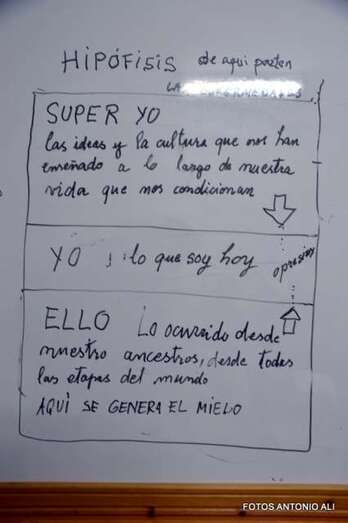 HIPÓFISIS de aqui parten
LAS ENFERMEDADES
SUPER YO
las ideas y la cultura que nos han
enseñado a lo largo de nuestra
vida que nos condicionan
YO lo que soy hoy
opresion
ELLO Lo ocurrido desde
nuestro ancestros, desde todas
las etapas del mundo
AQUI SE GENERA EL MIEDO
FOTOS ANTONIO ALI